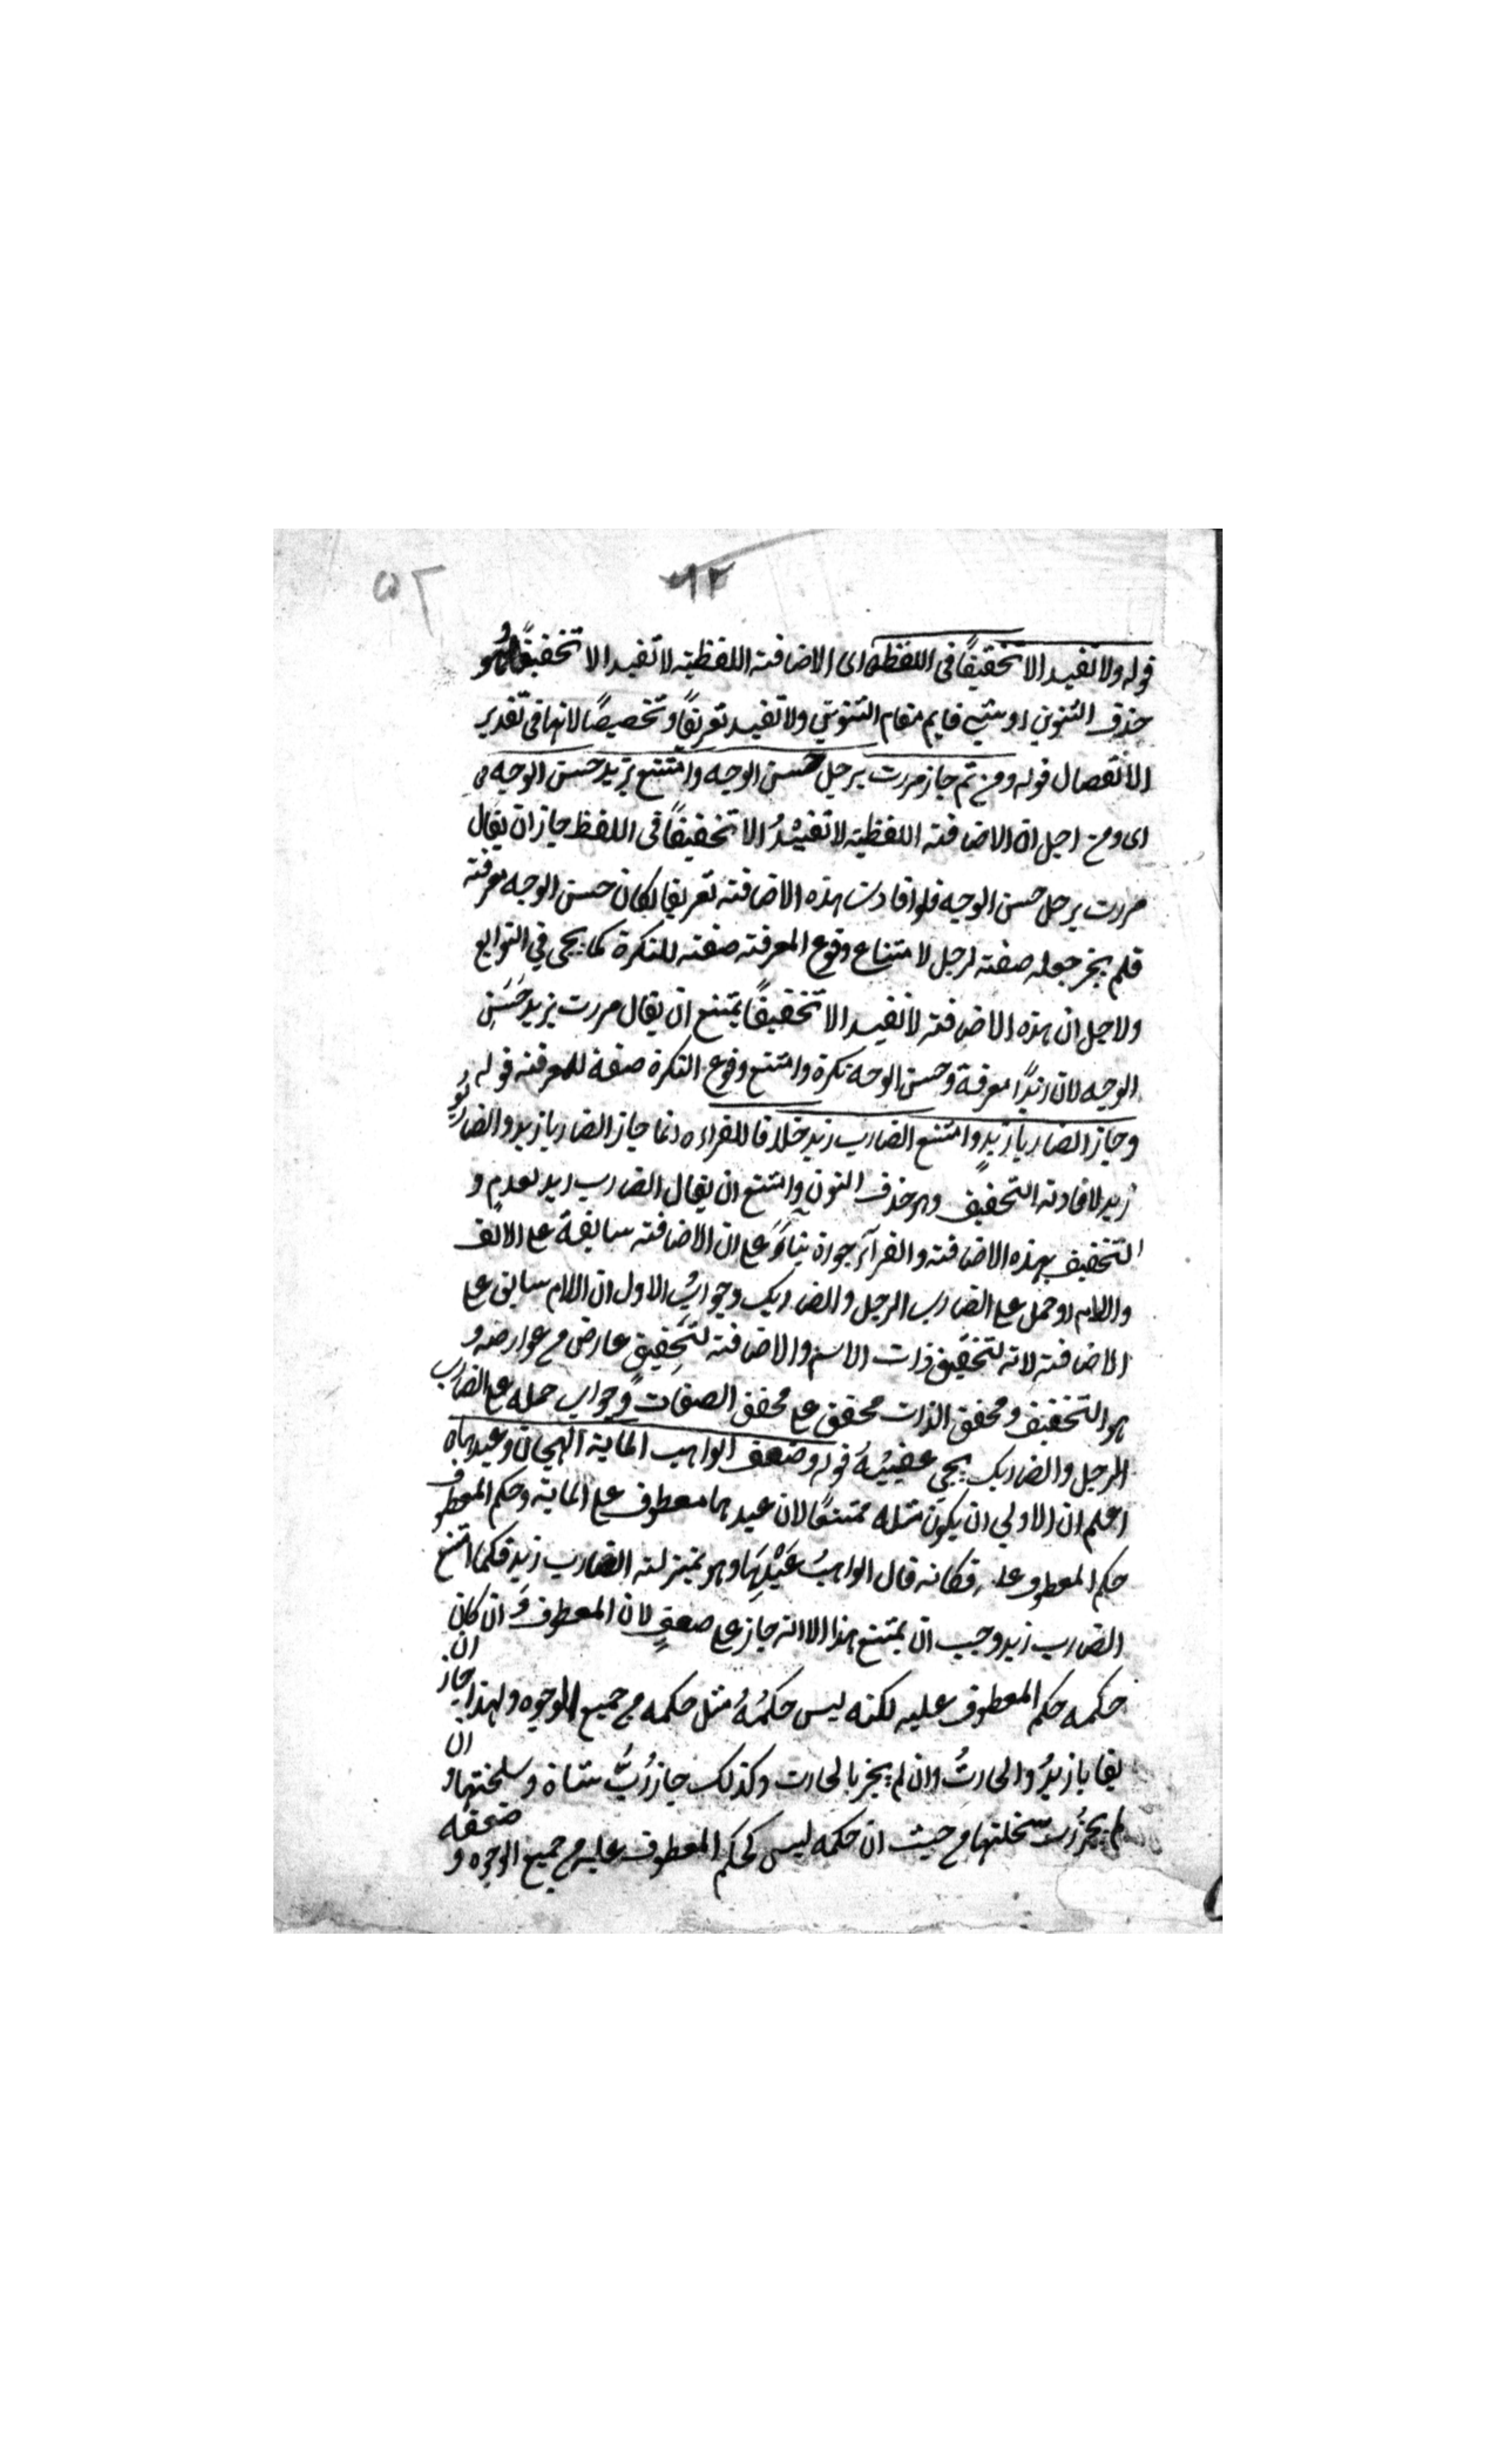 ٥٢
٩٢
قوله ولا تفيد الا تخفيفًا فى اللفظ اى الاضافته اللفظيته لا تفيد الا تخفيفًا وهو
حذف التنوين او شئ قايم مقام التنوين ولا تفيد تعريفًا وتخصيصًا لانها فى تقدير
الانفصال قوله ومن ثم جاز مررت برجل حسن الوجه وامتنع بزيد حسن الوجه
اى ومن اجل ان الاضافته اللفظيته لا تفيدُ الا تخفيفًا فى اللفظ جاز ان يقال
مررت برجل حسن الوجه فلو افادت هذه الاضافته تعريفا لكان حسن الوجه معرفته
فلم يجز جعله صفته لرجل لامتناع وقوع المعرفته صفته للنكرة كما يجى فى التوابع
ولاجل ان هذه الاضافته لا تفيد الا تخفيفًا يمتنع ان يقال مررت بزيد حَسَنِ
الوجه لان زيدًا معرفة وحسن الوجه نكرة وامتنع وقوع النكرة صفة للمعرفته قوله
وجاز الضاربا زيدٍ وامتنع الضارب زيد خلافا للفراء انما جاز الضاربا زيد والضاربو
زيد لافادته التخفيف وهو حذف النون وامتنع ان يقال الضارب زيد لعدم و
التخفيف بهذه الاضافته والفرآء جوزه بناءً على ان الاضافته سابقة على الالف
واللام او حمل على الضارب الرجل والضاربك وجوابُ الاول ان اللام سابق على
الاضافته لانه لتحقيق ذات الاسم والاضافته لتحقيق عارض من عوارضه و
هو التخفيف ومحقق الذات محقق على محقق الصفات وجواب حمله على الضارب
الرجل والضاربك يجى عقيبهُ قوله وضعف الواهب الماية الهجان وعبدها
اعلم ان الاولى ان يكون مثله ممتنعًا لان عبدها معطوف على الماية وحكم المعطوف
حكم المعطوف عليه فكانه قال الواهبُ عَبْدِهَا وهو بمنزلته الضارب زيد فكما امتنع
الضارب زيد وجب ان يمتنع هذا الا انه جاز على ضعفٍ لان المعطوف وَ ان كان
حكمه حكم المعطوف عليه لكنه ليس حكمُهُ مثل حكمه من جميع الوجوه ولهذا جاز ان
يقا يا زيدُ والحارثُ وان لم يجز يا لحارث وكذلك جاز رُبَّ شاة وسخلتها و ان
لم يجز رُب سخلتها من حيث ان حكمه ليس كحكم المعطوف عليه من جميع الوجوه و ضعفه